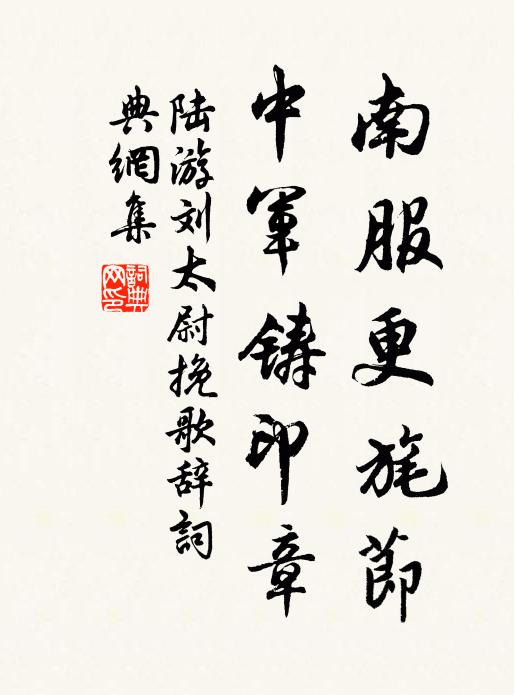 南服更旄節
中軍鋳印章
陆游刘太尉挽歌辞詞
典網集
詞典網印